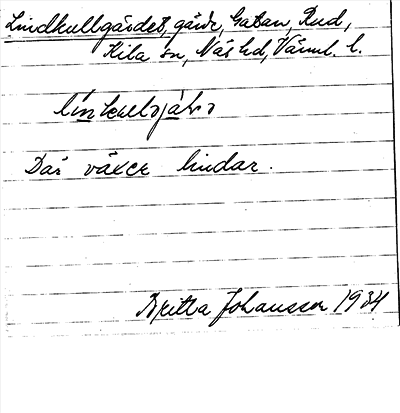 Lindkullgärdet, gärde, Gatan, Rud,
Kila sn, Näs hd, Värml. l.
Där växer lindar.
Britta Johansson 1934